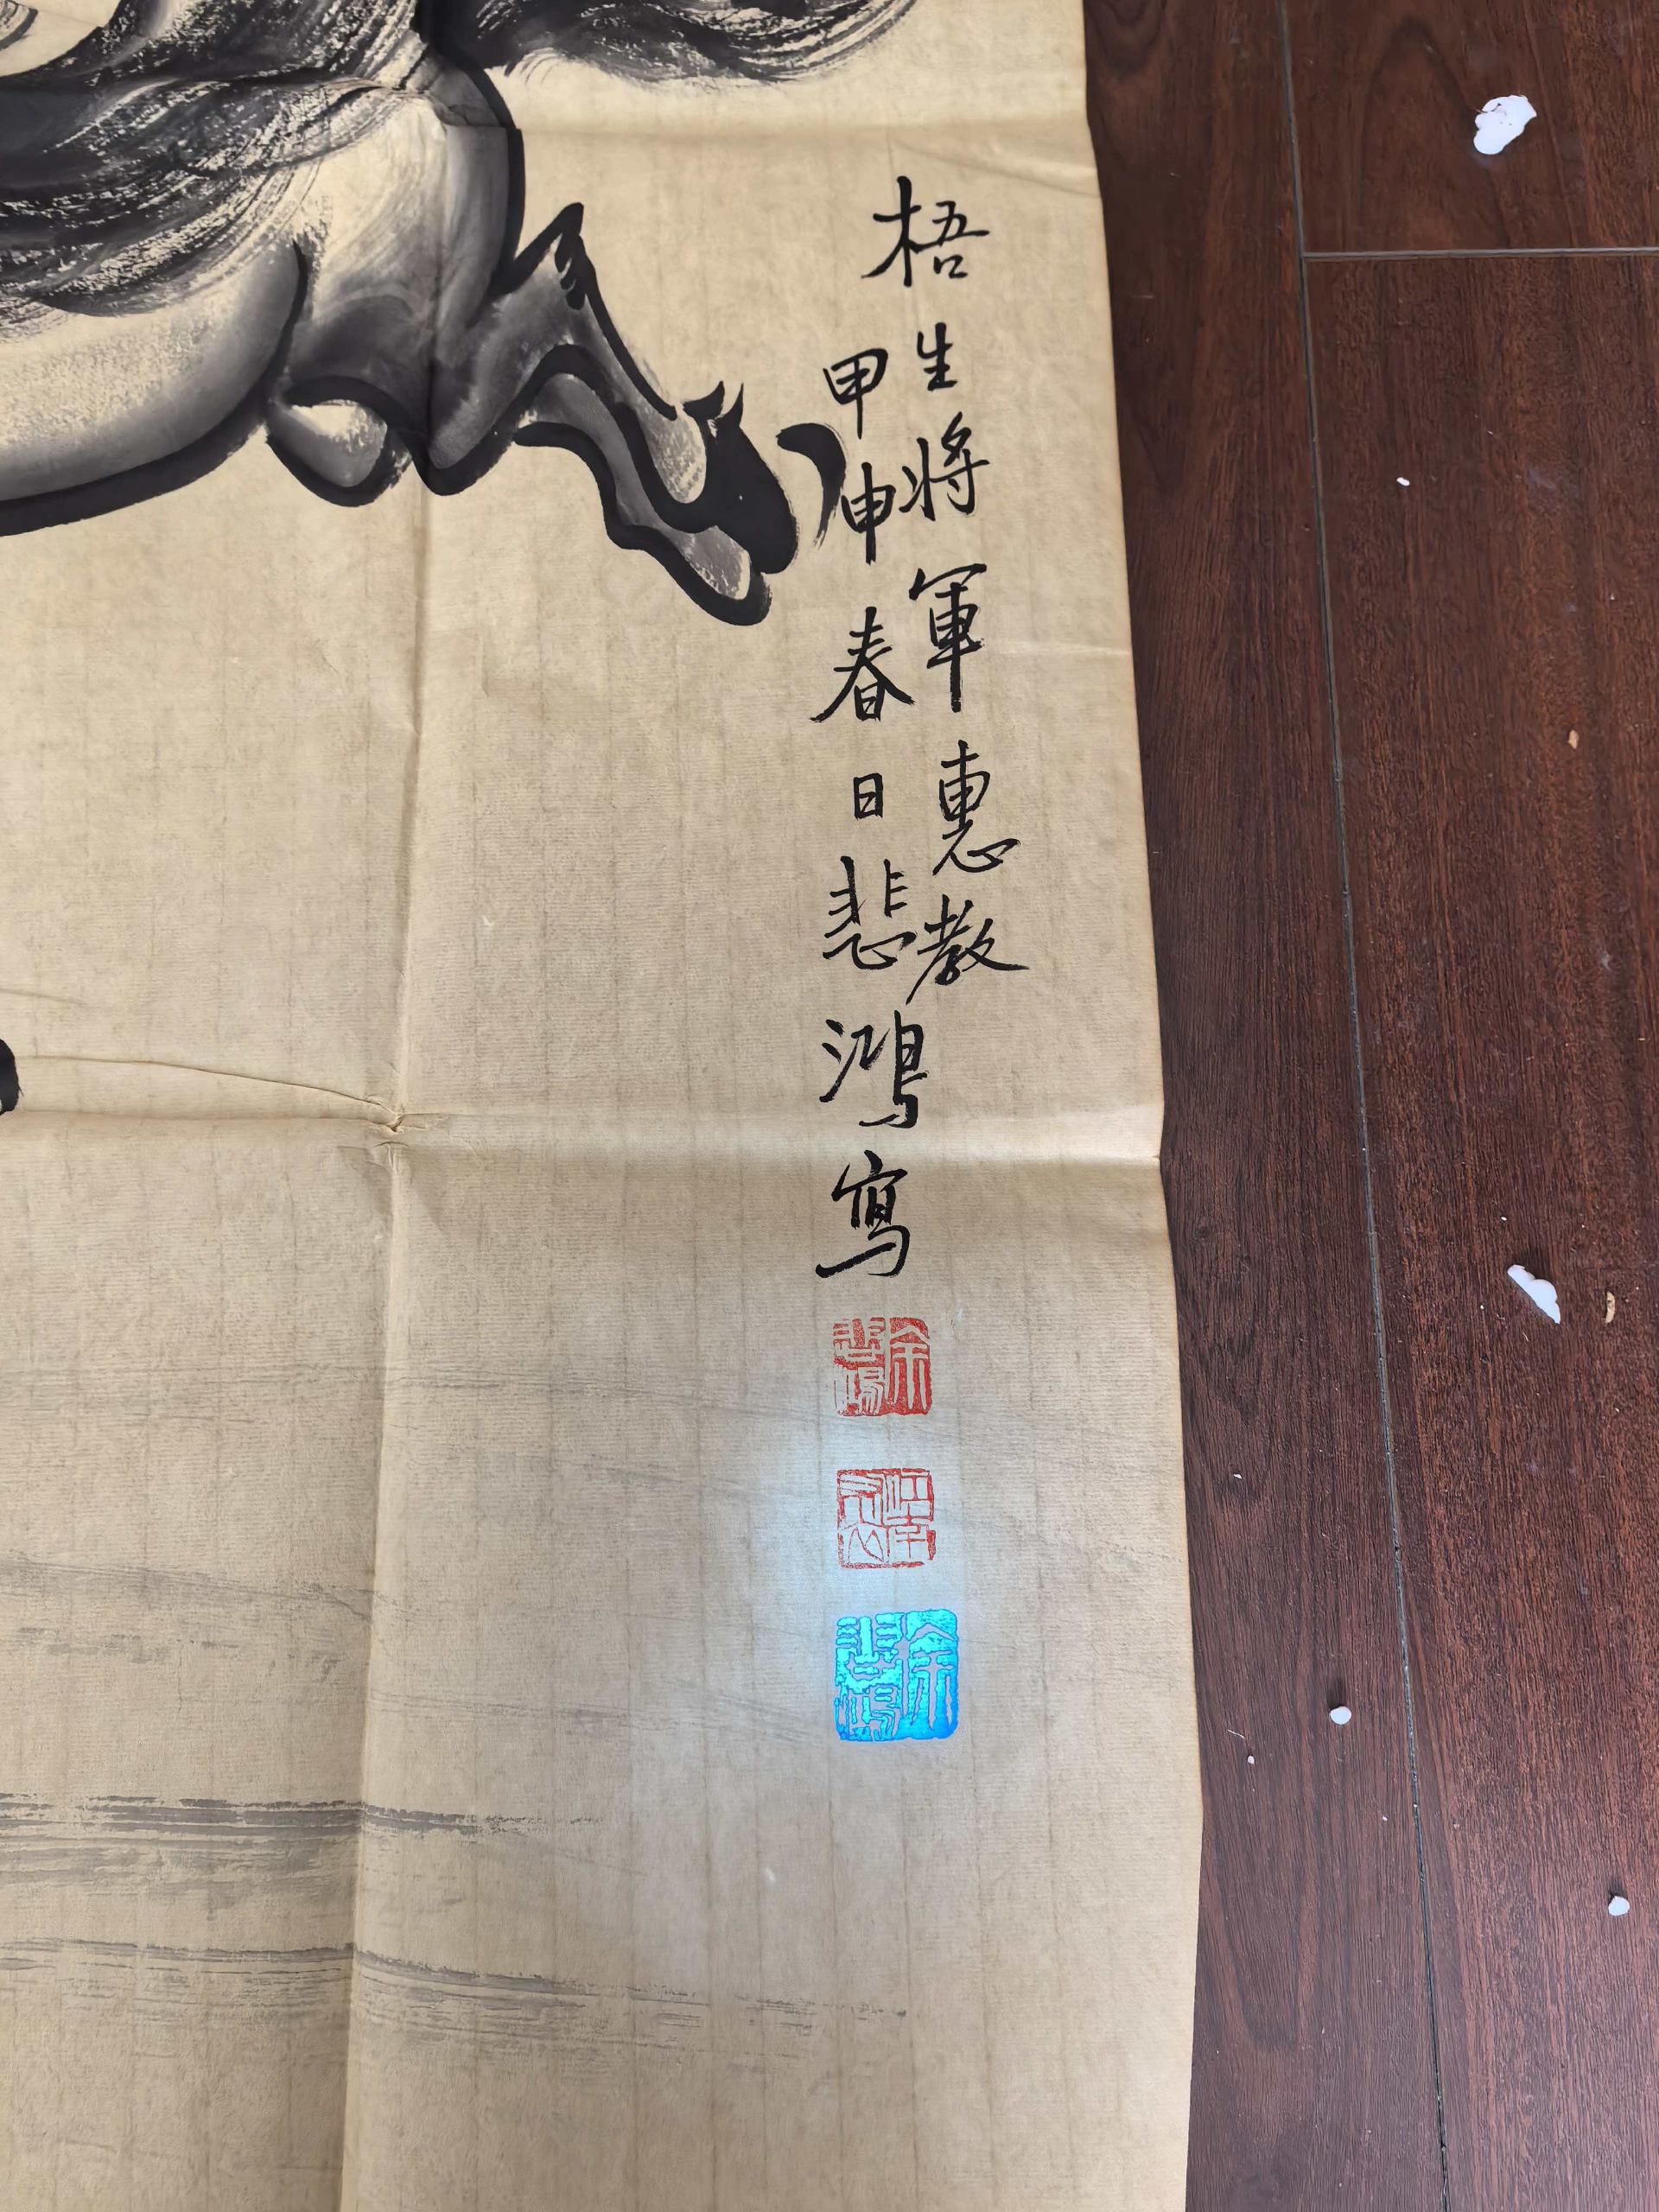 梧生將軍惠教
甲申春日悲鴻寫
徐悲鴻
徐悲鴻